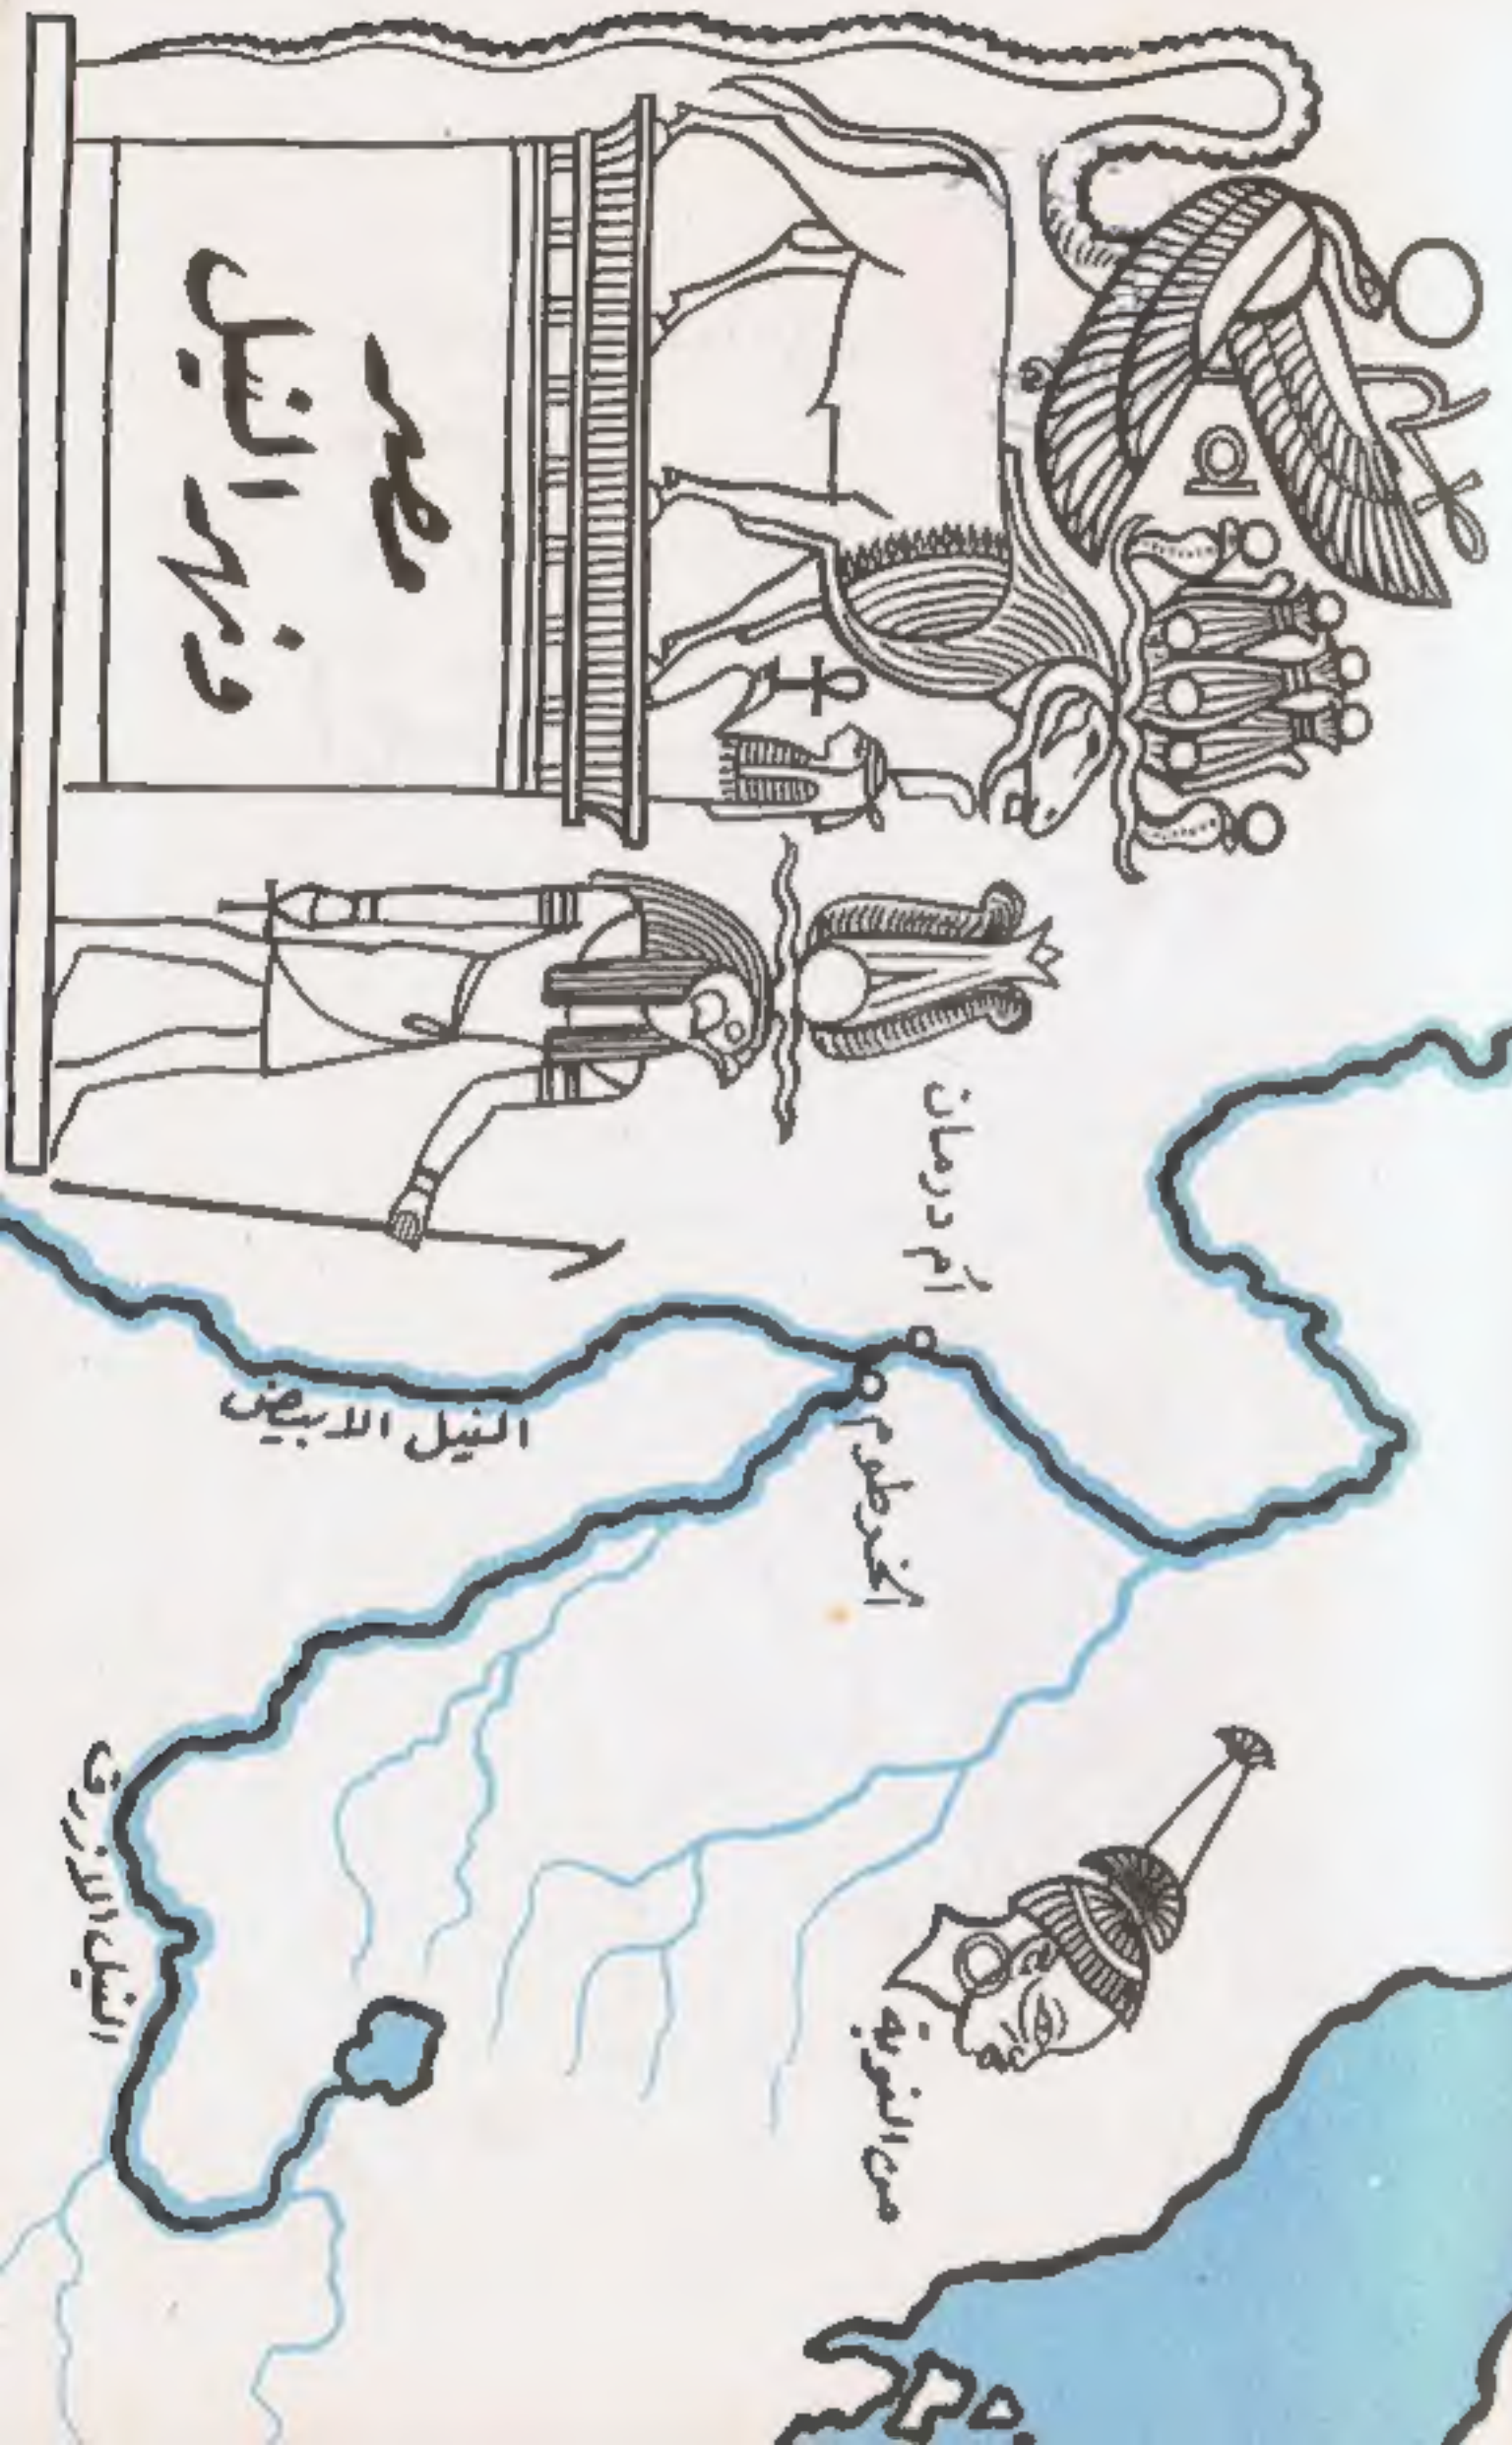 مصر
ونهر النيل
أم درمان
الخرطوم
النيل الابيض
النيل الازرق
من النوبة